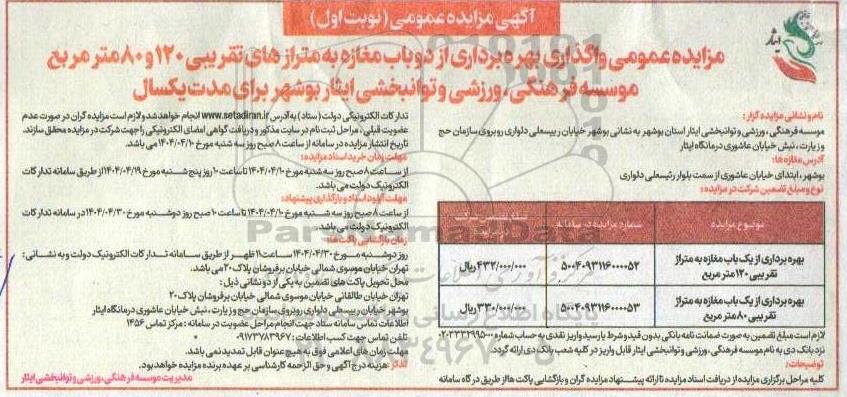 آگهی مزایده عمومی (نوبت اول)
مزایده عمومی واگذاری بهره برداری از دو باب مغازه به متراژهای تقریبی ۱۲۰ و ۸۰ متر مربع
موسسه فرهنگی، ورزشی و توانبخشی ایثار بوشهر برای مدت یکسال
ایثار
نام و نشانی مزایده گزار:
موسسه فرهنگی، ورزشی و توانبخشی ایثار استان بوشهر به نشانی بوشهر خیابان رییسعلی دلواری روبروی سازمان حج
و زیارت، نبش خیابان عاشوری درمانگاه ایثار
آدرس مغازه ها:
بوشهر، ابتدای خیابان عاشوری از سمت بلوار رئیسعلی دلواری
نوع و مبلغ تضمین شرکت در مزایده:
موضوع مزایده شماره مزایده در سامانه
بهره برداری از یک باب مغازه به متراژ تقریبی ۱۲۰ متر مربع ۵۰۰۴۰۹۳۱۱۶۰۰۰۰۵۲ ۴۳۲/۰۰۰/۰۰۰ ریال
بهره برداری از یک باب مغازه به متراژ تقریبی ۸۰ متر مربع ۵۰۰۴۰۹۳۱۱۶۰۰۰۰۵۳ ۳۳۰/۰۰۰/۰۰۰ ریال
لازم است مبلغ تضمین به صورت ضمانت نامه بانکی بدون قید و شرط یا رسید واریز نقدی به حساب شماره ۰۲۰۳۳۳۲۹۹۵۰۰۰
نزد بانک دی به نام موسسه فرهنگی، ورزشی و توانبخشی ایثار قابل واریز در کلیه شعب بانک دی ارائه گردد.
توضیحات:
کلیه مراحل برگزاری مزایده از دریافت اسناد مزایده تا ارائه پیشنهاد مزایده گران و بازگشایی پاکت ها از طریق درگاه سامانه
تدارکات الکترونیکی دولت (ستاد) به آدرس www.setadiran.ir انجام خواهد شد و لازم است مزایده گران در صورت عدم
عضویت قبلی، مراحل ثبت نام در سایت مذکور و دریافت گواهی امضای الکترونیکی را جهت شرکت در مزایده محقق سازند.
تاریخ انتشار مزایده در سامانه از ساعت ۸ صبح روز سه شنبه مورخ ۱۴۰۴/۰۴/۱۰ می باشد.
مهلت زمان خرید اسناد مزایده:
از ساعت ۸ صبح روز سه شنبه مورخ ۱۴۰۴/۰۴/۱۰ تا ساعت ۱۰ روز پنج شنبه مورخ ۱۴۰۴/۰۴/۱۹ از طریق سامانه تدارکات
الکترونیک دولت می باشد.
مهلت آپلود اسناد و بارگذاری پیشنهاد:
از ساعت ۸ صبح روز سه شنبه مورخ ۱۴۰۴/۰۴/۱۰ تا ساعت ۱۰ صبح روز دوشنبه مورخ ۱۴۰۴/۰۴/۳۰ در سامانه تدارکات
الکترونیک دولت می باشد.
زمان بازگشایی پاکت ها:
روز دوشنبه مورخ ۱۴۰۴/۰۴/۳۰ ساعت ۱۱ ظهر از طریق سامانه تدارکات الکترونیک دولت و به نشانی:
تهران خیابان موسوی شمالی خیابان برفروشان پلاک ۲۰ می باشد.
محل تحویل پاکت های تضمین به یکی از دو نشانی ذیل:
تهران خیابان طالقانی خیابان موسوی شمالی خیابان برفروشان پلاک ۲۰
بوشهر خیابان رییسعلی دلواری روبروی سازمان حج و زیارت، نبش خیابان عاشوری درمانگاه ایثار
اطلاعات تماس سامانه ستاد جهت انجام مراحل عضویت در سامانه: مرکز تماس ۱۴۵۶
تلفن تماس جهت کسب اطلاعات: ۰۹۱۷۳۷۸۳۹۶۷
مهلت زمان های اعلامی فوق به هیچ عنوان قابل تمدید نمی باشد.
تذکر: هزینه درج آگهی و حق الزحمه کارشناسی بر عهده برنده مزایده خواهد بود.
مدیریت موسسه فرهنگی، ورزشی و توانبخشی ایثار
ParsNamadData